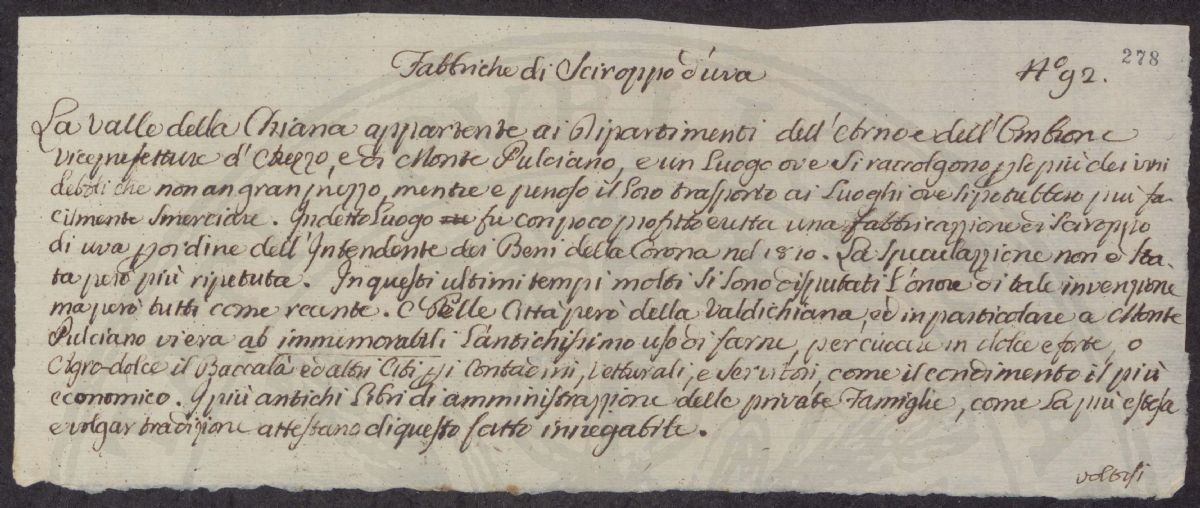 278
Fabbriche di Sciroppo d'uva N.° 92.
La Valle della Chiana appartente ai Dipartimenti dell'Arno e dell'Ombrone
Viceprefetture d'Arezzo, e di Monte Pulciano, e un Luogo ove si raccolgono p le più dei vini
deboli che non an gran prezzo, mentre e penoso il loro trasporto ai Luoghi ove si potrebbero più fa-
cilmente smerciare. In detto Luogo fu con poco profitto eretta una fabbricazione di Sciroppo
di uva p ordine dell'Intendente dei Beni della Corona nel 1810. La speculazione non è sta-
ta però più ripetuta. In questi ultimi tempi molti si sono disputati L'onore di tale invenzione
ma però tutti come recente. Nelle Città però della Valdichiana, ed in particolare a Monte
Pulciano vi era ab immemorabili L'antichissimo uso di farne, per cuocere in dolce e forte, o
Agro-dolce il Baccalà ed altri Cibi p i Contadini, Vetturali, e Servitori, come il condimento il più
economico. I più antichi Libri di amministrazione delle private Famiglie, come La più estesa
e volgar tradizione attestano di questo fatto innegabile.
voltisi